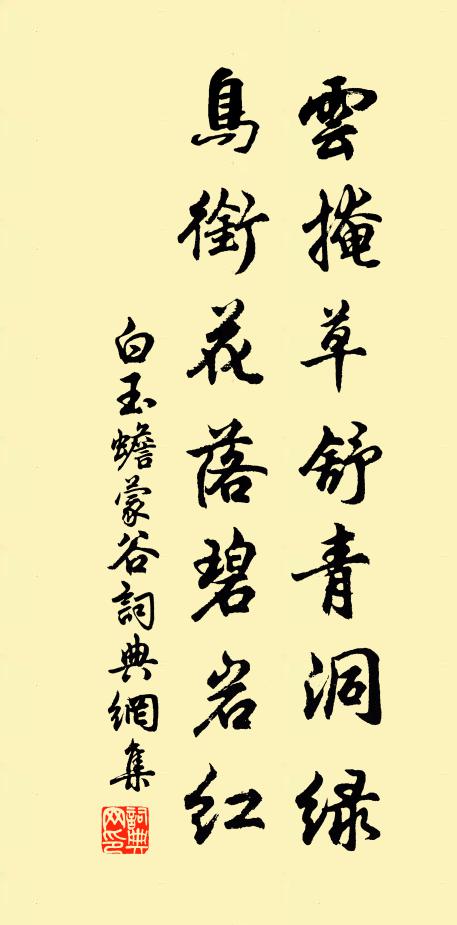 雲掩草舒青洞綠
鳥銜花落碧岩紅
白玉蟾蒙谷詞典網集
詞典
网印